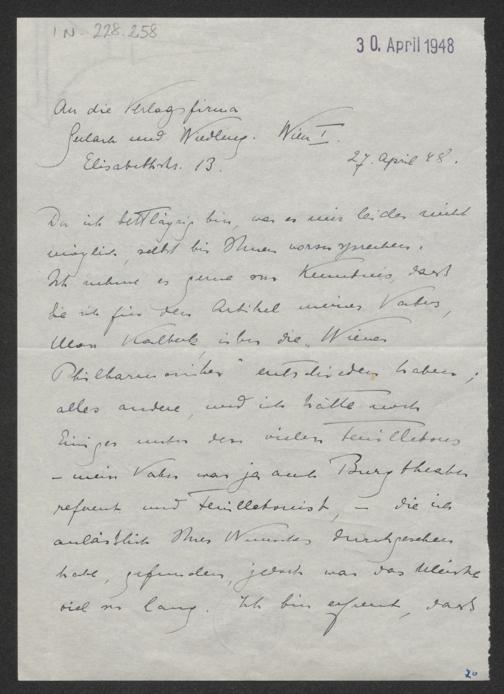 IN-228.258
30. April 1948
An die Verlagsfirma
Gerlach und Wiedling. Wien I.
Elisabethstr. 13.
27. April 48.
Da ich bettlägrig bin, war es mir leider nicht
möglich, selbst bei Ihnen vorzusprechen.
Ich nehme es gerne zur Kenntnis, dass
Sie sich für den Artikel meines Vaters,
Max Kalbeck, über die „Wiener
Philharmoniker" entschieden haben;
alles andere, und ich hätte noch
Einiges unter den vielen Feuilletons
– mein Vater war ja auch Burgtheater
referent und Feuilletonist, – die ich
anlässlich Ihres Wunsches durchgesehen
habe, gefunden, jedoch war das Meiste
viel zu lang. Ich bin erfreut, dass
20